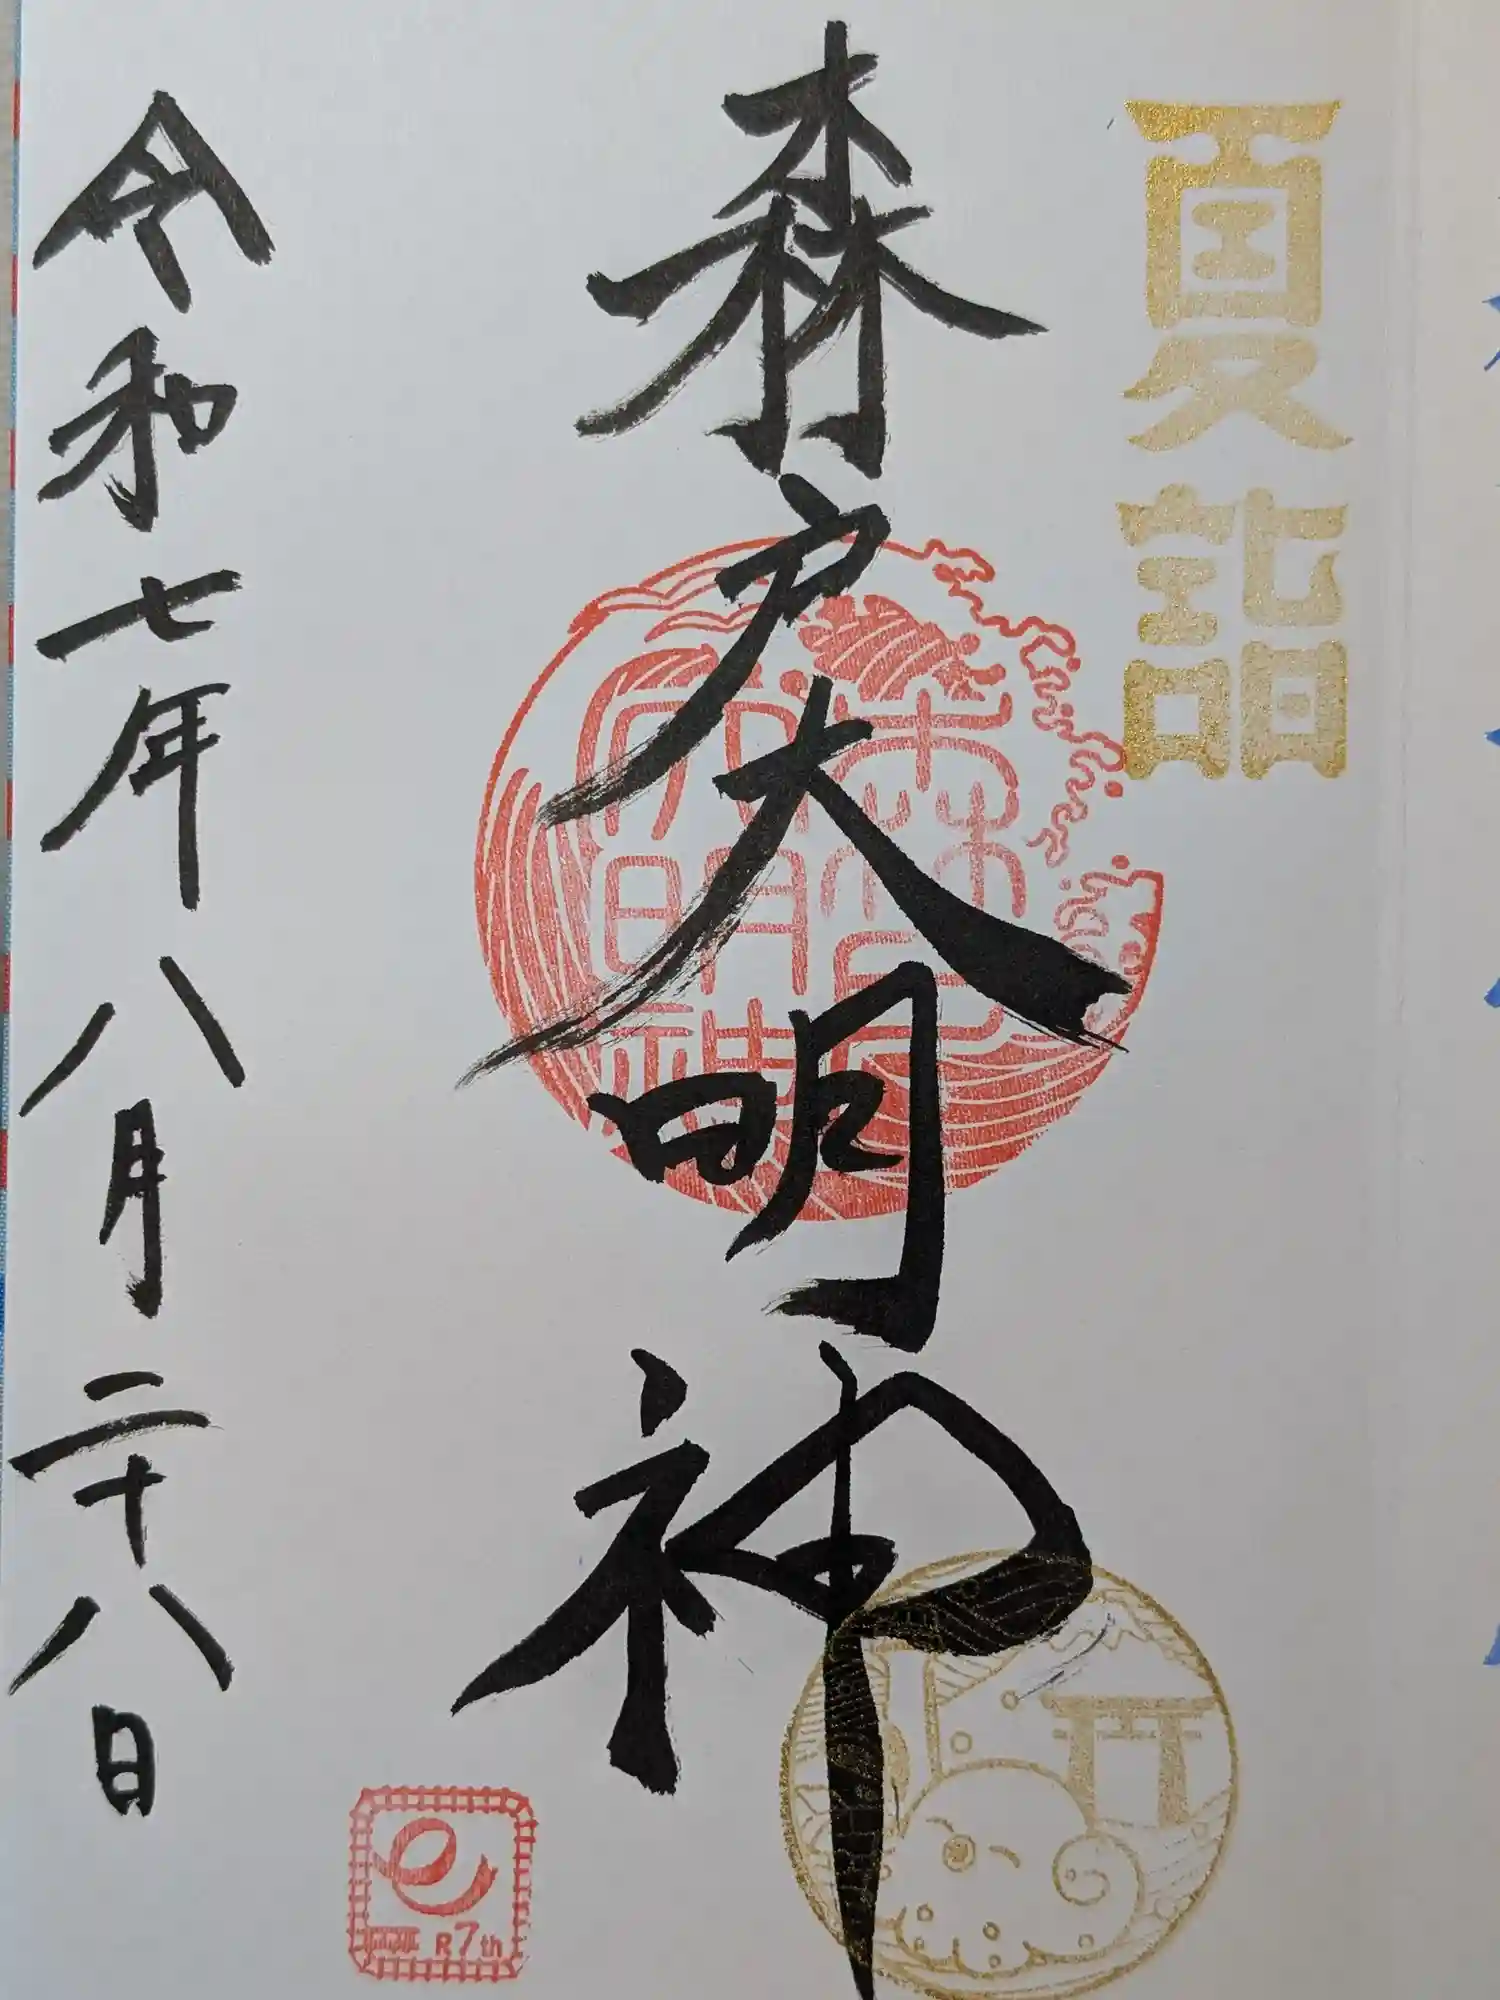 夏詣
森戸大明神
森戸大明神
令和七年八月二十八日
R7th